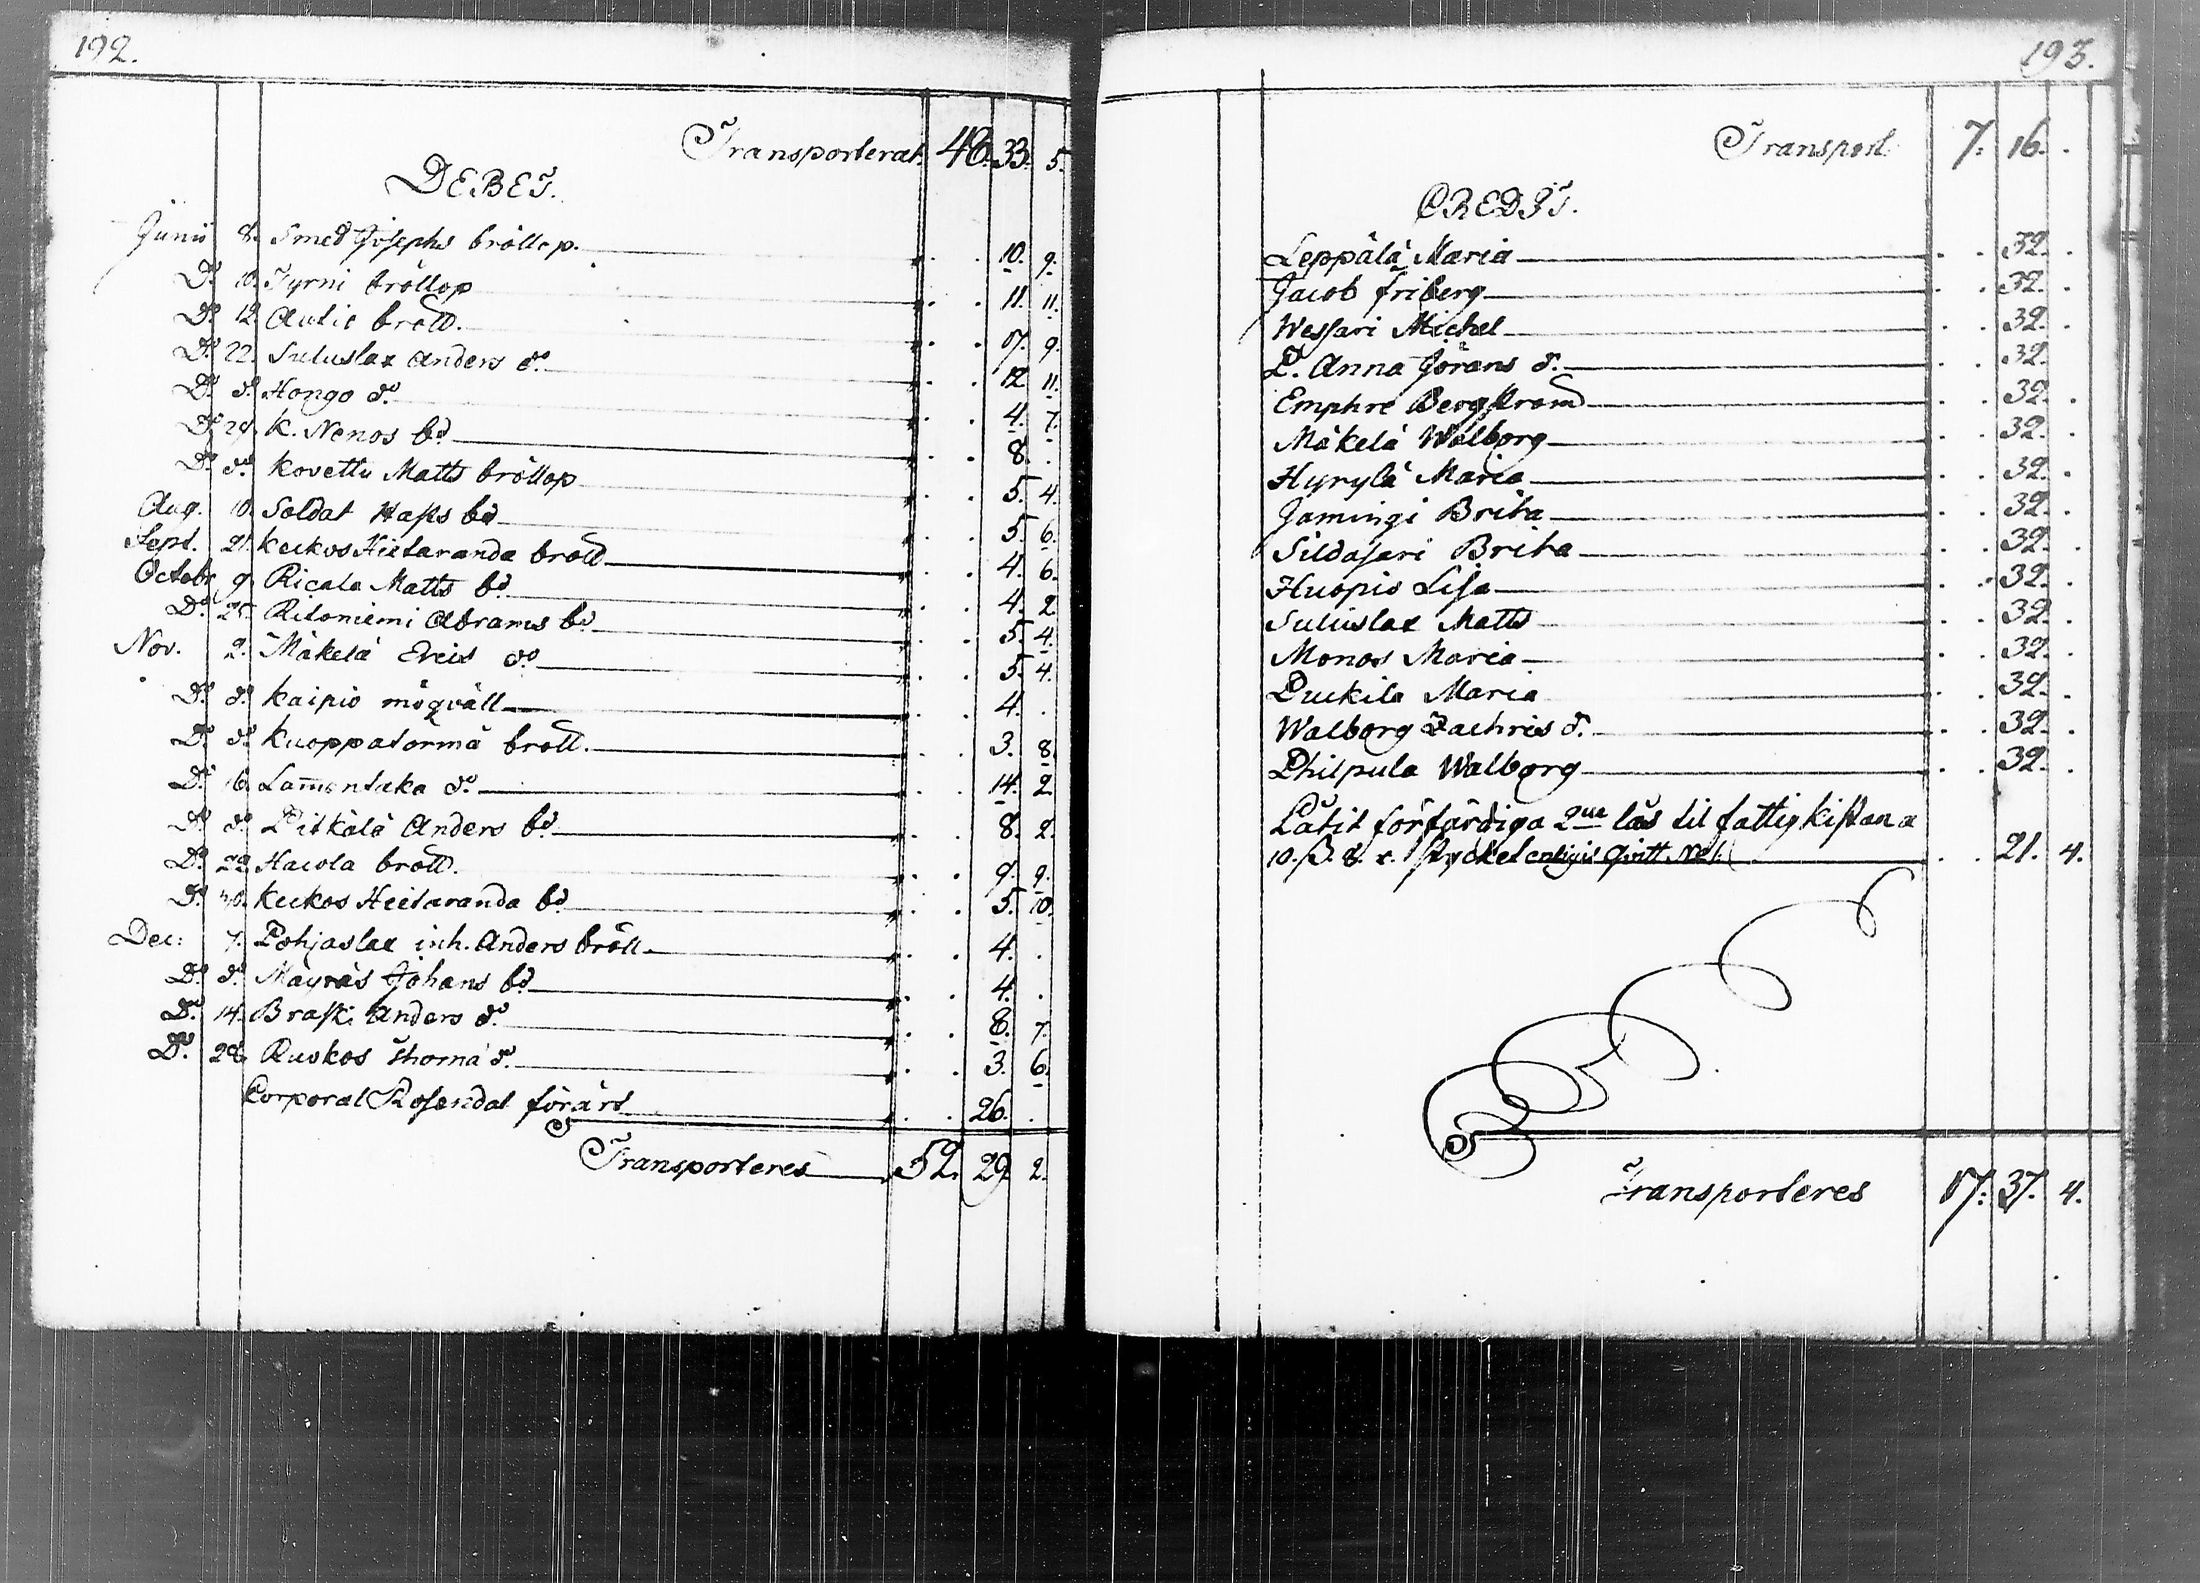 192.
Transporterat. 48. 33. 5.
DEBET.
Junii 8. Smed Josephs bröllop. . . 10. 9.
Do. 10. Tyrni bröllop . . 11. 11.
Do. 12. Autio bröll. . . 17. 9.
Do. 22. Suluslax Anders do. . . 12 11.
Do. do. Hongo do. . . 4. 7.
Do. 29. K. Nenos bd. . . 8. .
Do. do. Kovettu Matts bröllop . . 5. 4.
Aug. 10. Soldat Haps bd . . 5. 6.
Sept. 21. Keckos Hietaranda bröll. . . 4. 6.
Octobr. 9. Ricala Matts bd. . . 4. 2
Do. 25. Ritoniemi Abrams bd. . . 5. 4.
Nov. 2. Mäkelä Erics do . . 5. 4.
Do. do. Kaipio mögväll . . 4. .
Do. do. Kuoppatörmä bröll. . . 3. 8.
Do. 16. Lamentaka do. . . 14. 2
Do. do. Pitkälä Anders bd. . . 8. 2.
Do. 22. Hacola bröll. . . 9. 9.
Do. 30. Keckos Hietaranda bd. . . 5. 10.
Dec: 7. Pohjaslax inh. Anders bröll. . . 4. .
Do. do. Mäyräs Johans bd. . . 4. .
Do. 14. Braski Anders do. . . 8. 7.
Do. 28. Ruokos Thoma do. . . 3. 6.
Corporal Rosendal förärt . . 26. .
Transporteres 52. 29. 2.
193.
Transport. 7. 16. .
CREDIT.
Leppälä Maria . . 32. .
Jacob Friberg . . 32. .
Wessari Michel . . 32. .
P. Anna Görans d. . . 32.
Emphre Bergström . . 32. .
Mäkelä Walborg . . 32. .
Hyrylä Maria . . 32. .
Jamingi Brita . . 32. .
Sildasari Brita . . 32. .
Huopio Lisa . . 32. .
Suluslax Matts . . 32. .
Monos Maria . . 32. .
Puckila Maria . . 32. .
Walborg Zachris d. . . 32. .
Philpula Walborg . . 32. .
Låtit förfärdiga 2ne lås til fattigkistan a
10. ß. 8. r. stycket enligit Qvitt. No 1. . . 21. 4.
Transporteres 17. 37. 4.